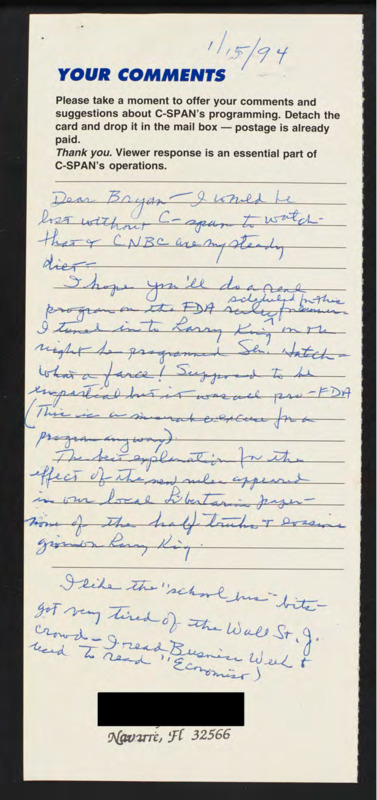 1/15/94
YOUR COMMENTS
Please take a moment to offer your comments and
suggestions about C-SPAN's programming. Detach the
card and drop it in the mail box — postage is already
paid.
Thank you. Viewer response is an essential part of
C-SPAN's operations.
Dear Bryan — I would be
lost without C-span to watch -
that & CNBC are my steady
diet -
I hope you'll do a real
scheduled for this
program on the FDA rules
I tuned in to Larry King on the
night he programmed Sen. Hatch -
what a farce! Supposed to be
impartial but it was all pro-FDA
(This is a excuse for a
program anyway)
The best explanation for the
effect of the new rules appeared
in our local Libertarian paper -
none of the half truths & evasions
given on Larry King.
I like the "school bus" bite -
got very tired of the Wall St. J.
crowd - I read Business Week &
used to read "Economist)
Navarre, Fl 32566